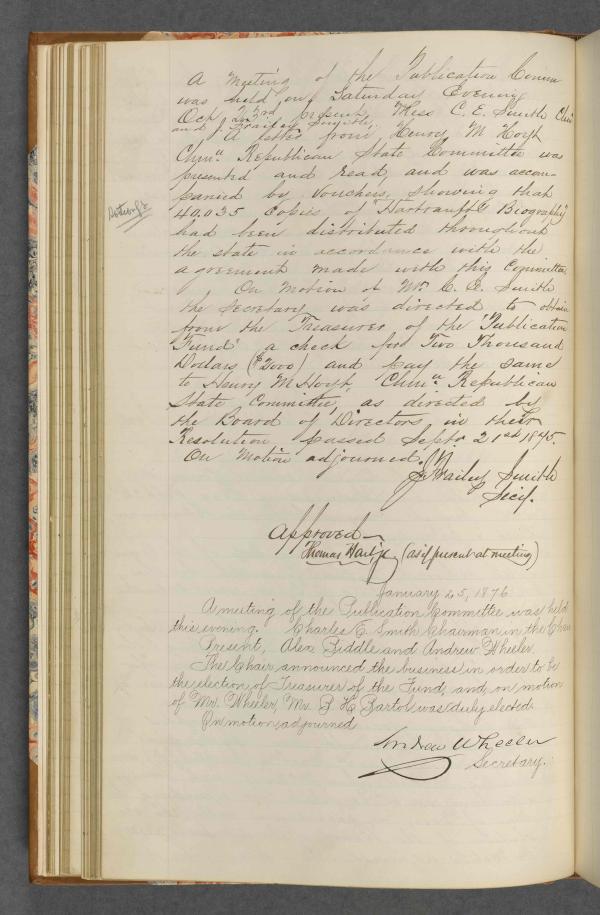 A meeting of the Publication Comm
was held on Saturday Evening
Oct 23rd present, Mess C. E. Smith Chn
and J. Frailey Smith,
A letter from, Henry M Hoyt
Chmn. Republican State Committee was
presented and read, and was accom-
panied by Vouchers, showing that
40,035 Copies of "Hartranft Biography"
had been distributed throughout
the state in accordance with the
agreement made with this Committee
On Motion of Mr. C. E. Smith
the Secretary was directed to obtain
from the Treasurer of the "Publication
Fund" a check for Two Thousand
Dollars ($2000) and pay the same
to Henry M Hoyt, Chmn Republican
State Committee, as directed by
the Board of Directors in their
Resolution passed Sept. 21st 1875.
On Motion adjourned.
J. Frailey Smith
Secy.
Approved
Thomas (as if present at meeting)
January 25, 1876
A meeting of the Publication Committee was held
this evening. Charles E. Smith Chairman in the Chair
Present, Alex Biddle and Andrew Wheeler.
The Chair announced the business in order to be
the election of Treasurer of the Fund, and on motion
of Mr. Wheeler, Mr. B H Bartol was duly elected.
On motion adjourned
Andrew Wheeler
Secretary.